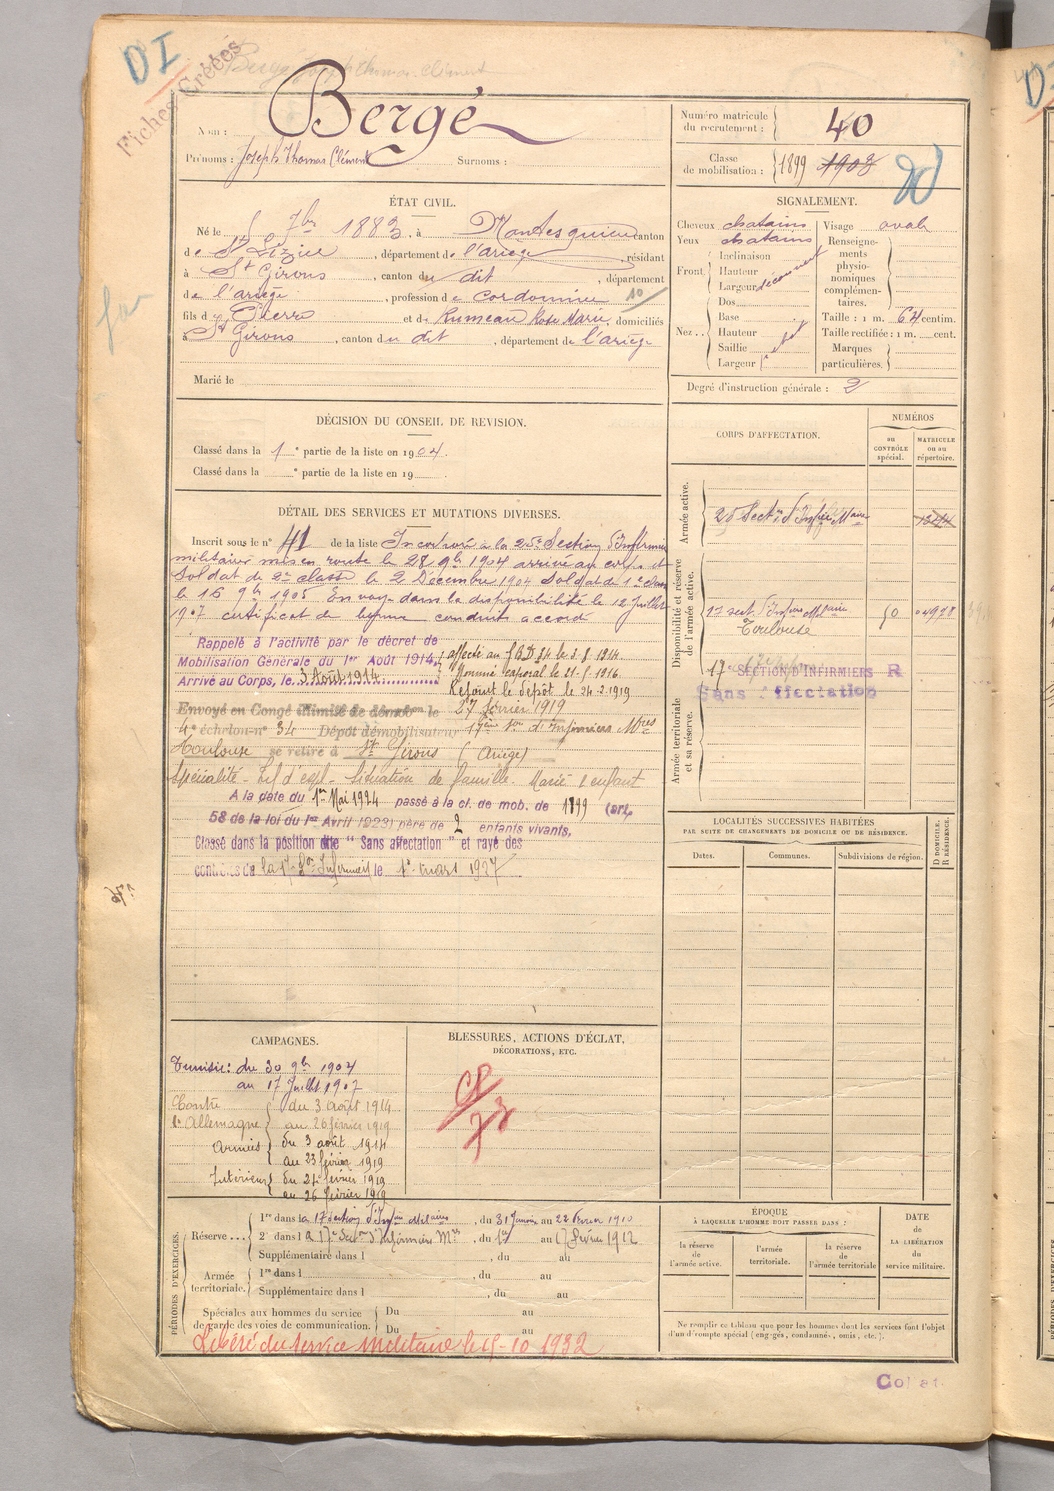 DI
Fiches Créées
Bergé Joseph Thomas Clément
Nom : Bergé
Prénoms : Joseph Thomas Clément Surnoms :
Numéro matricule du recrutement : 40
Classe de mobilisation : 1899 1903
ÉTAT CIVIL.
Né le 7bre 1883, à Montesquieu canton
de St Lizier, département de l'ariège, résidant
à St Girons, canton du dit, département
de l'ariège, profession de cordonnier 10
fils de Pierre et de Rumeau Rose Marie, domiciliés
à St Girons, canton du dit, département de l'ariège
Marié le
SIGNALEMENT.
Cheveux chatains
Yeux chatains
Front Inclinaison
Hauteur
Largeur découvert
Nez Dos
Base
Hauteur
Saillie
Largeur
Visage oval
Renseignements physionomiques complémentaires.
Taille : 1 m. 64 centim.
Taille rectifiée : 1 m. cent.
Marques particulières.
Degré d'instruction générale : 2
DÉCISION DU CONSEIL DE REVISION.
Classé dans la 1e partie de la liste en 1904.
Classé dans la e partie de la liste en 19
DÉTAIL DES SERVICES ET MUTATIONS DIVERSES.
Inscrit sous le n° 41 de la liste Incorporé à la 25e Section d'Infirmiers
militaires mis en route le 28 9bre 1904 arrivé au corps et
Soldat de 2e classe le 2 Décembre 1904 Soldat de 1e classe
le 16 9bre 1905 Envoyé dans la disponibilité le 12 Juillet
1907 certificat de bonne conduite accordé
Rappelé à l'activité par le décret de
Mobilisation Générale du 1er Août 1914,
Arrivé au Corps, le 3 Août 1914
affecté au 34 le 3.8.1914
Nommé caporal le 1916
Rejoint le Dépôt le 24.2.1919
Envoyé en Congé illimité de démobon le 27 février 1919
4e échelon n° 34 Dépôt démobilisateur 17ème Son d'Infirmiers Mres
Toulouse se retire à St Girons (Ariège)
Spécialité Situation de famille Marié 1 enfant
A la date du 1er Mai 1924 passé à la cl. de mob. de 1899 (art.
58 de la loi du 1er Avril 1923) père de 2 enfants vivants,
Classé dans la position dite " Sans affectation " et rayé des
contrôles de la 17e Son Infirmiers le 1er mars 1927
CORPS D'AFFECTATION.
NUMÉROS
au CONTRÔLE spécial.
MATRICULE ou au répertoire.
Armée active.
25 Section d'Infirs Mres
Disponibilité et réserve de l'armée active.
17 sect. d'Infirs Militaires
Toulouse
17e SECTION D'INFIRMIERS R
Sans Affectation
Armée territoriale et sa réserve.
LOCALITÉS SUCCESSIVES HABITÉES
PAR SUITE DE CHANGEMENTS DE DOMICILE OU DE RÉSIDENCE.
Dates. Communes. Subdivisions de région. D DOMICILE. R RÉSIDENCE.
CAMPAGNES.
Tunisie : du 30 9bre 1904
au 17 Juillet 1907
Contre l'Allemagne du 3 août 1914
au 26 février 1919
Armées du 3 août 1914
au 23 février 1919
Intérieur du 24 février 1919
au 26 février 1919
BLESSURES, ACTIONS D'ÉCLAT,
DÉCORATIONS, ETC.
PÉRIODES D'EXERCICES.
Réserve 1re dans la 17 section d'Infirs Militaires, du 31 Janvier au 22 Février 1910
2e dans la 17e Section d'Infirmiers Mres, du 1er au 17 février 1912
Supplémentaire dans l , du au
Armée territoriale. 1re dans l , du au
Supplémentaire dans l , du au
Spéciales aux hommes du service de garde des voies de communication. Du au
Du au
Libéré du service militaire le 15-10 1932
ÉPOQUE
À LAQUELLE L'HOMME DOIT PASSER DANS :
la réserve de l'armée active.
l'armée territoriale.
la réserve de l'armée territoriale
DATE de LA LIBÉRATION du service militaire.
Ne remplir ce tableau que pour les hommes dont les services font l'objet
d'un décompte spécial (engagés, condamnés, omis, etc.).